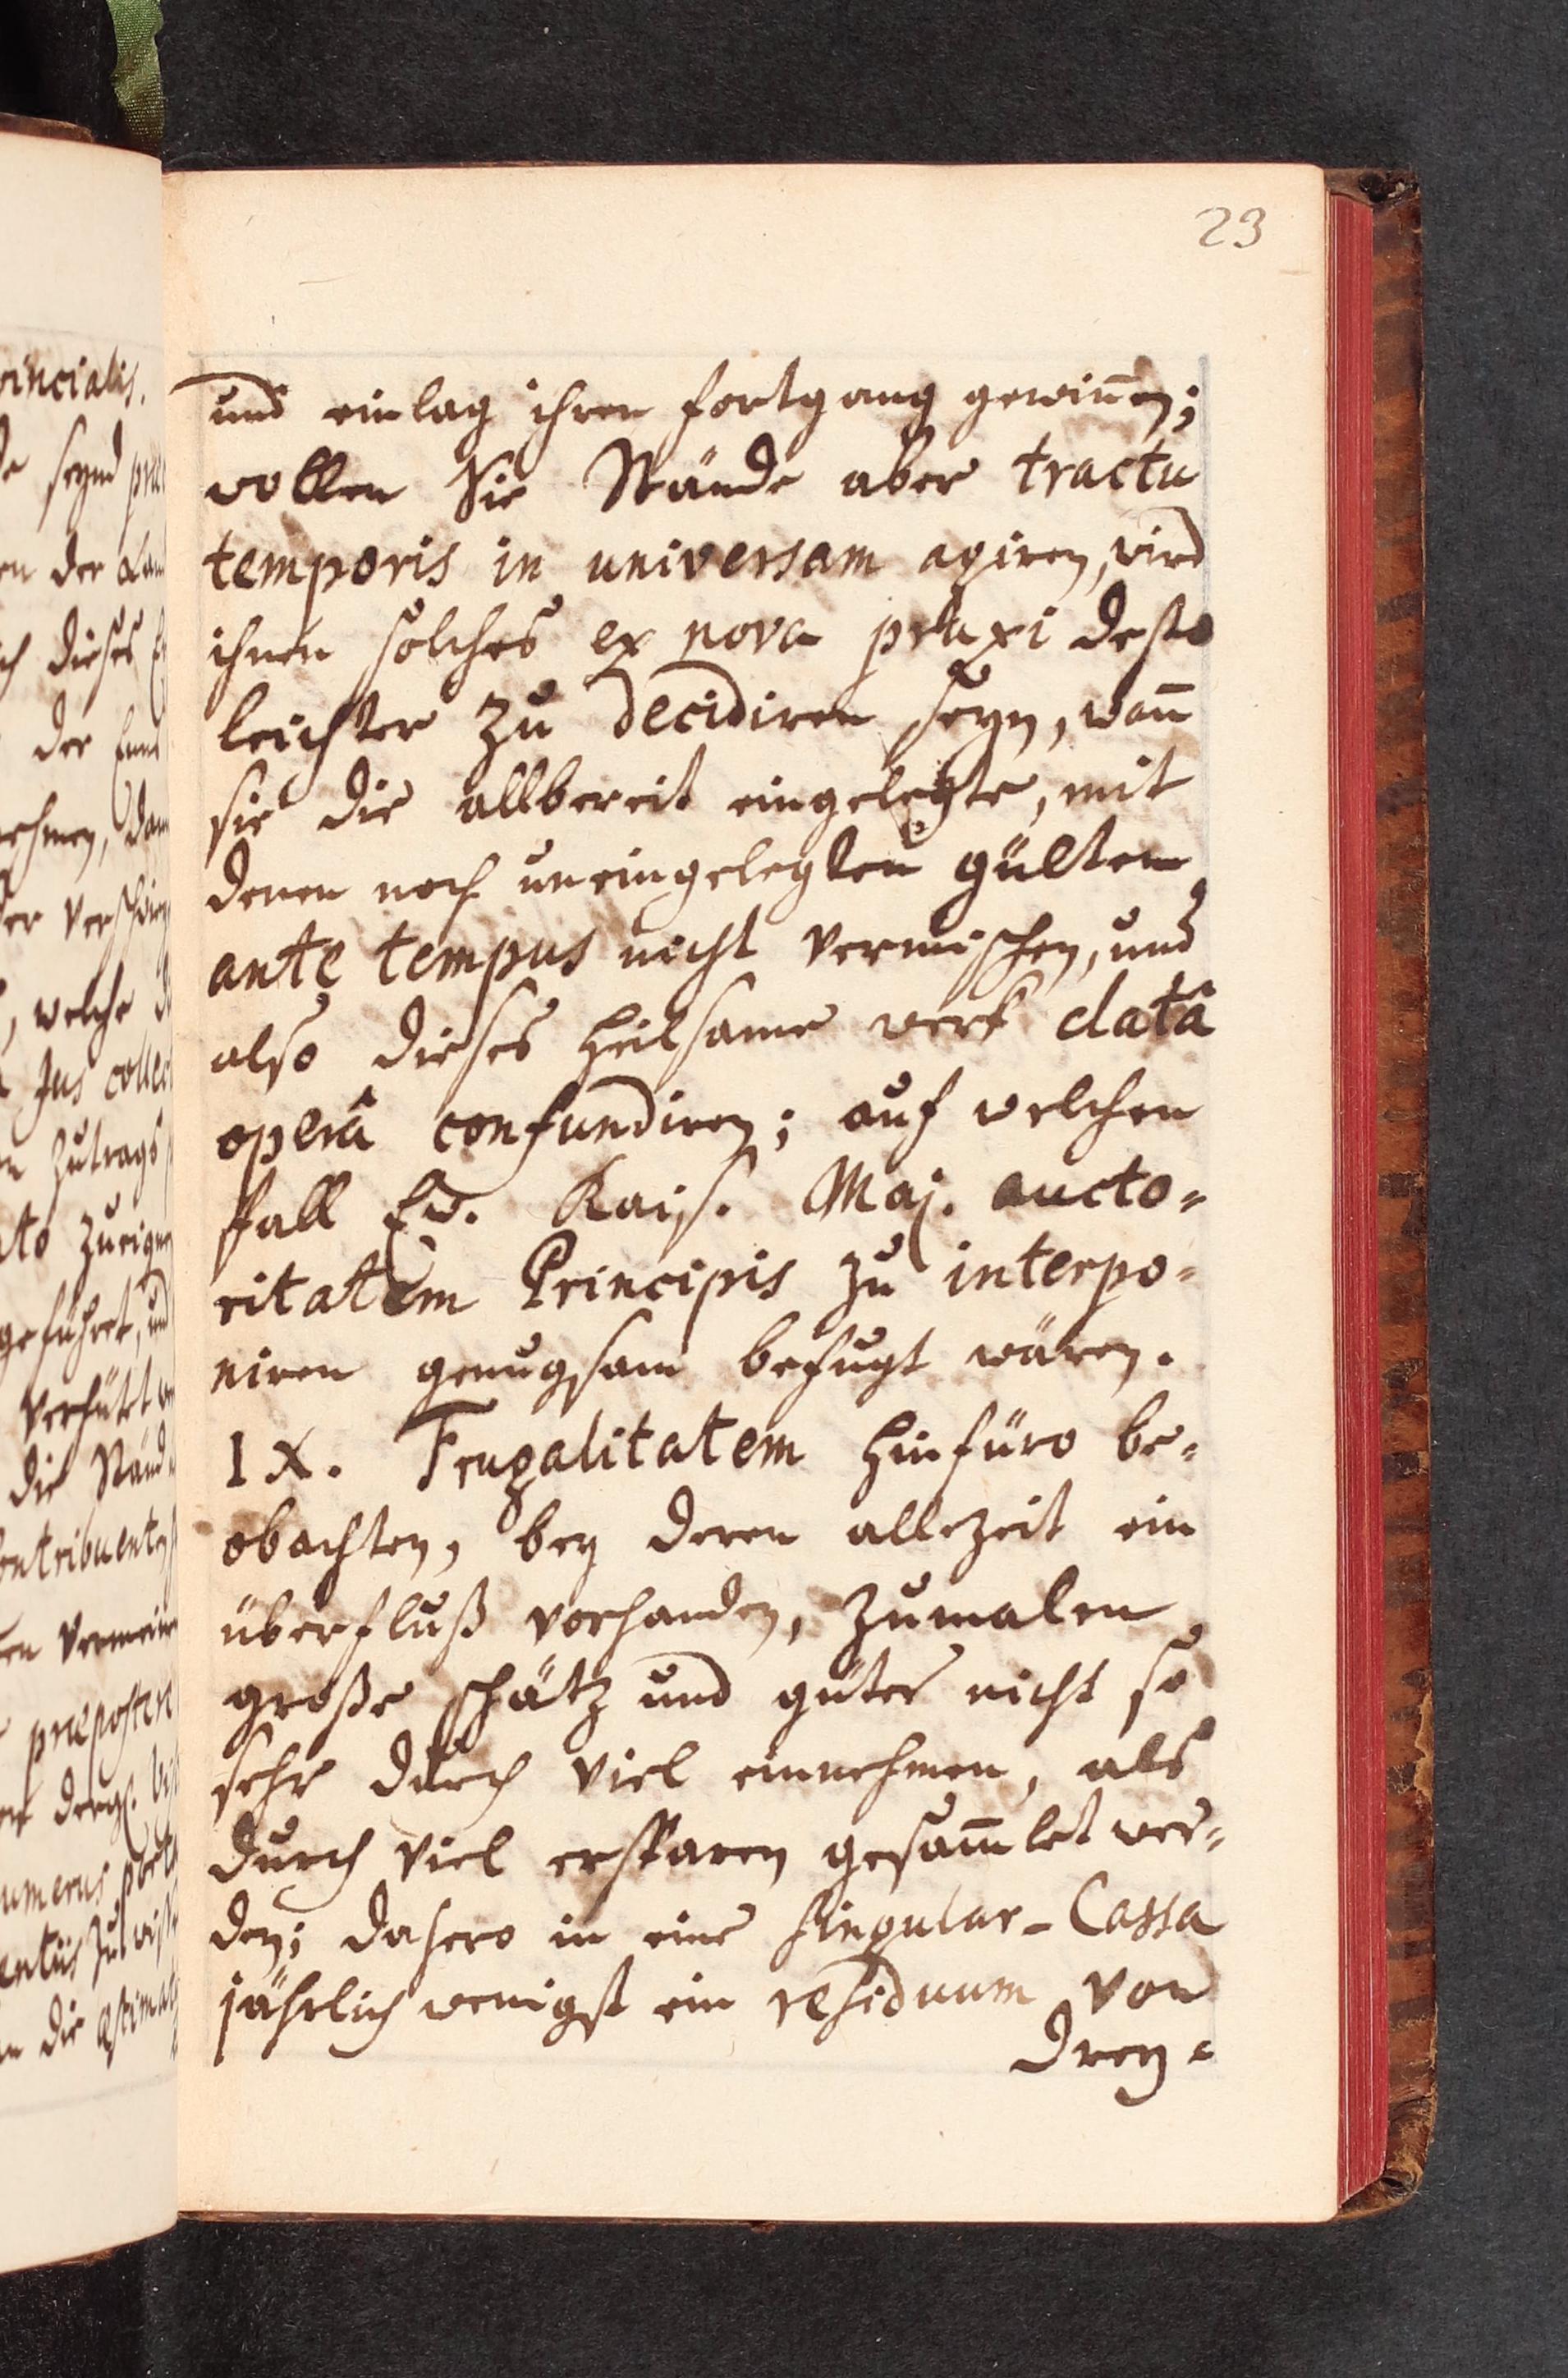 23
und einlag ihren fortgang gewiñen;
wollen Sie Stände aber tractu
temporis in universam agiren, wird
ihnen solches ex nova praxi desto
leichter zu decidiren seyn, wañ
sie die allbereit eingelegte, mit
denen noch uneingelegten gülten
ante tempus nicht vermischen, und
also dieses heilsame werk datâ
operâ confundiren; auf welchen
fall Ew. Kais. Maj. aucto=
ritatem Principis zu interpo=
niren genugsam befugt wären.
IX. Frugalitatem hinfüro be=
obachten, bey deren allezeit ein
überfluß vorhanden, zumalen
große schätz und güter nicht so
sehr durch viel einnehmen, als
durch viel ersparen gesam̃let wer=
den; dahero in eine singular-Cassa
jährlich wenigst ein residuum von
drey=